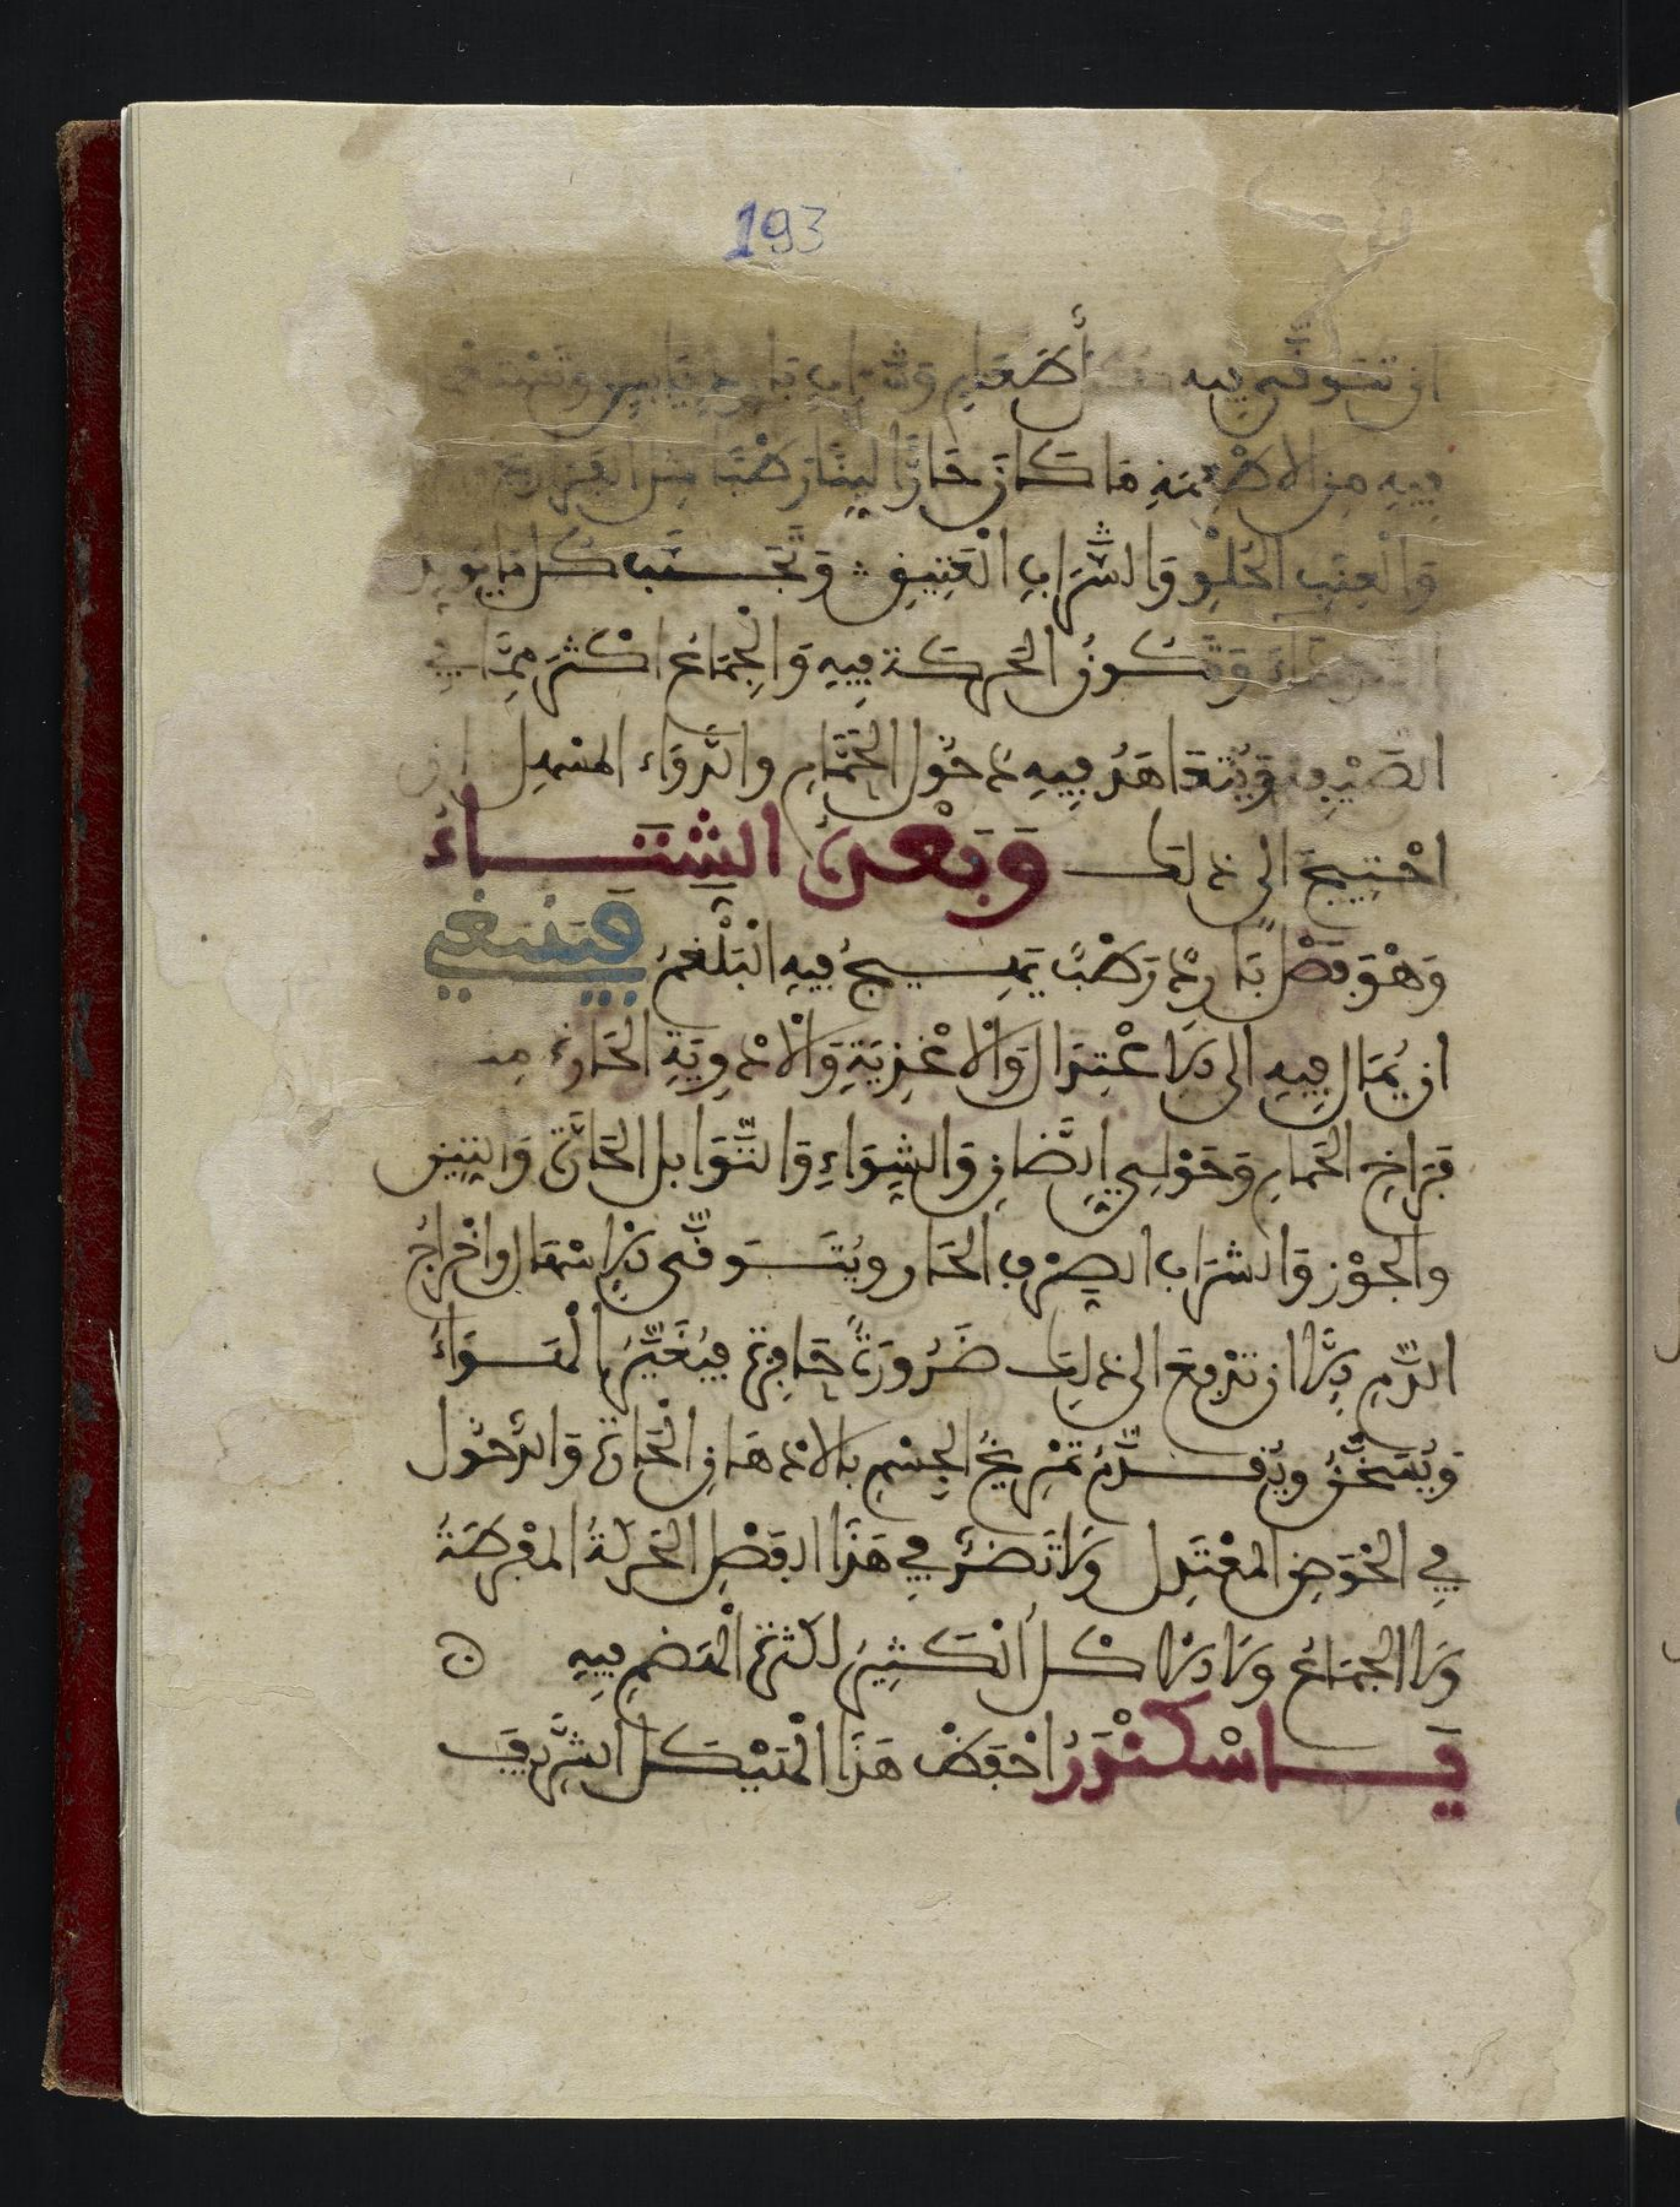 193
ان تتوقى فيه أطعام وشراب بارد يابس وتستعمل
فيه من الاطعمة ما كان حارًّا لينًا رطبًا مثل
وَالْعِنَبِ الحُلْوِ وَالشَّرَابِ الْعَتِيقِ وَتُجَتنَّب كل ما يولد
السوداء وَتكون الحَركة فِيهِ وَالْجِمَاعُ اكْثَر مِمَّا فِي
الصَّيْفِ وَيُتَعَاهَدُ فِيهِ دخُول الحَمَّامِ والدَّوَاء المسْهِل ان
احْتِيجَ الى ذلك وَبَعْدَهُ الشِّتَاءُ
وَهْوَ فَصْلٌ بَاردٌ رَطْبٌ يَهِيجُ فِيهِ الْبَلْغَمُ فَينبَغِي
ان يُمَال فِيهِ الى الاعْتِدَال وَالْاغْذِيَةِ وَالْادْوِيَةِ الحَارة مِن
فِرَاخ الحَمامِ وَحَوْلِي الضَّان وَالشِّوَاءِ وَالتَّوَابل الحَارَّة وَالتين
والجَوْز وَالشرَاب الصِرْف الحَار ويُتَوَقَّى الاسْهَال واخْرَاج
الدَّمِ إلَّا ان تَدْفع الى ذلِك ضَرُورَةٌ حَافِزة فيُغَيَّر الْهَوَاءُ
وَيُسَخَّنُ ويُقدَّمُ تَمْرِيخُ الجِسْمِ بالادْهَان الْحَارة وَالدُّخُول
فِي الحْوضِ المعْتَدِل وَلَا تَضُرُّ فِي هَذَا الفَصْلِ الحَركَةُ المفْرطَةُ
وَلَا الْجمَاعُ وَلَا الاكْل الْكَثِير لكثرة الْهَضم فِيهِ
يَا اسْكنْدَرُ احْفَظْ هَذَا الْهَيْكَل الشَّرِيف